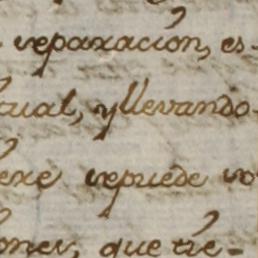 reparacion, es-
tual, y llevando
ere repuede vo
ones, que tie-